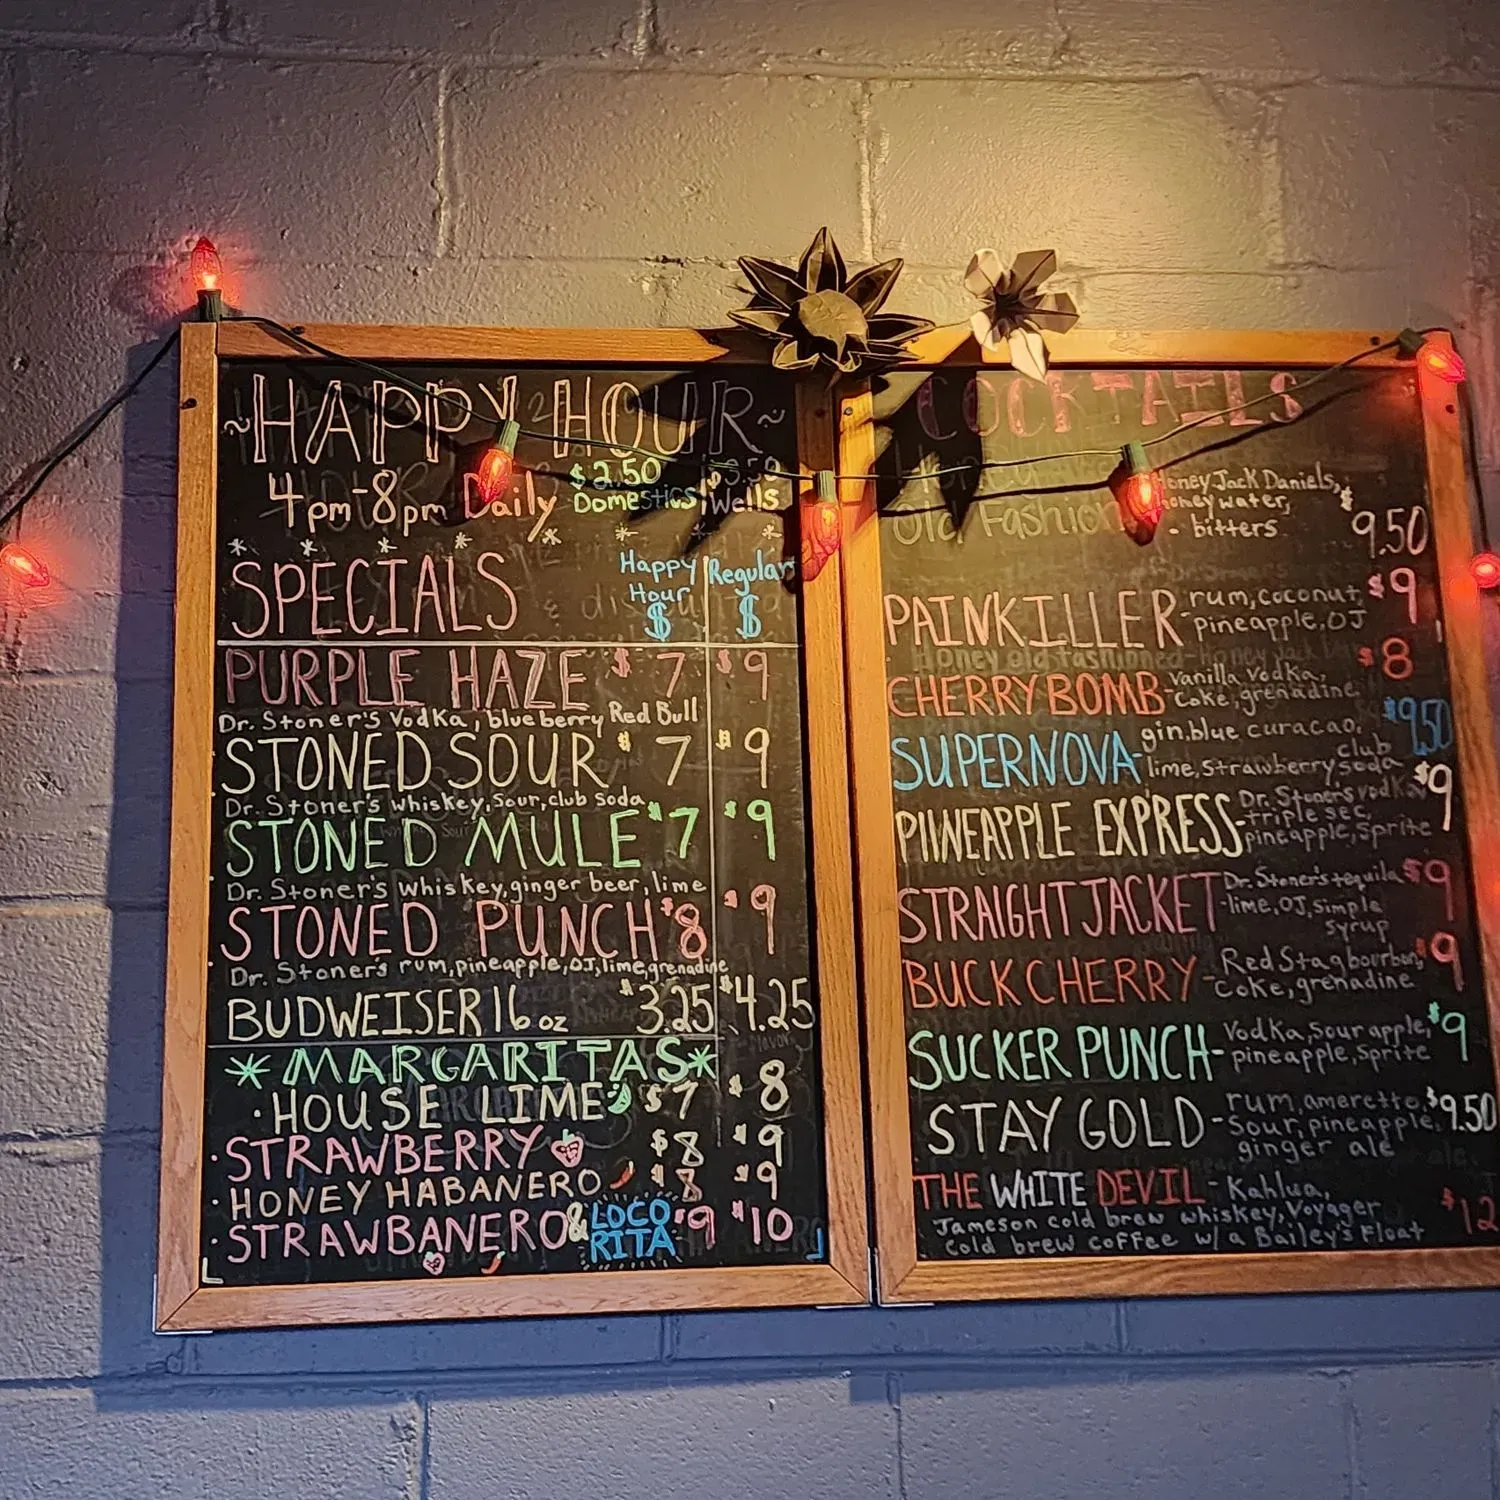 ~HAPPY HOUR~
4pm-8pm Daily $2.50 Domestics, $3.50 Wells
SPECIALS Happy Hour $ Regular $
PURPLE HAZE $7 $9
Dr. Stoner's Vodka, blueberry Red Bull
STONED SOUR $7 $9
Dr. Stoner's whiskey, sour, club soda
STONED MULE $7 $9
Dr. Stoner's whiskey, ginger beer, lime
STONED PUNCH $8 $9
Dr. Stoners rum, pineapple, OJ, lime, grenadine
BUDWEISER 16 oz $3.25 $4.25
*MARGARITAS*
·HOUSE LIME $7 $8
·STRAWBERRY $8 $9
·HONEY HABANERO $8 $9
·STRAWBANERO & LOCO RITA $9 $10
COCKTAILS
Old Fashion
Honey Jack Daniels,
honey water,
- bitters $9.50
PAINKILLER- rum, coconut, $9
pineapple, OJ
CHERRY BOMB- vanilla vodka, $8
Coke, grenadine
SUPERNOVA- gin, blue curacao, $9.50
lime, strawberry club soda
PIINEAPPLE EXPRESS- Dr. Stoner's vodka, $9
triple sec,
pineapple, Sprite
STRAIGHT JACKET- Dr. Stoner's tequila $9
lime, OJ, simple
syrup
BUCK CHERRY- Red Stag bourbon, $9
Coke, grenadine
SUCKER PUNCH- Vodka, sour apple, $9
pineapple, Sprite
STAY GOLD- rum, ameretto, $9.50
Sour, pineapple,
ginger ale
THE WHITE DEVIL- Kahlua, $12
Jameson cold brew whiskey, Voyager
Cold brew coffee w/ a Bailey's Float